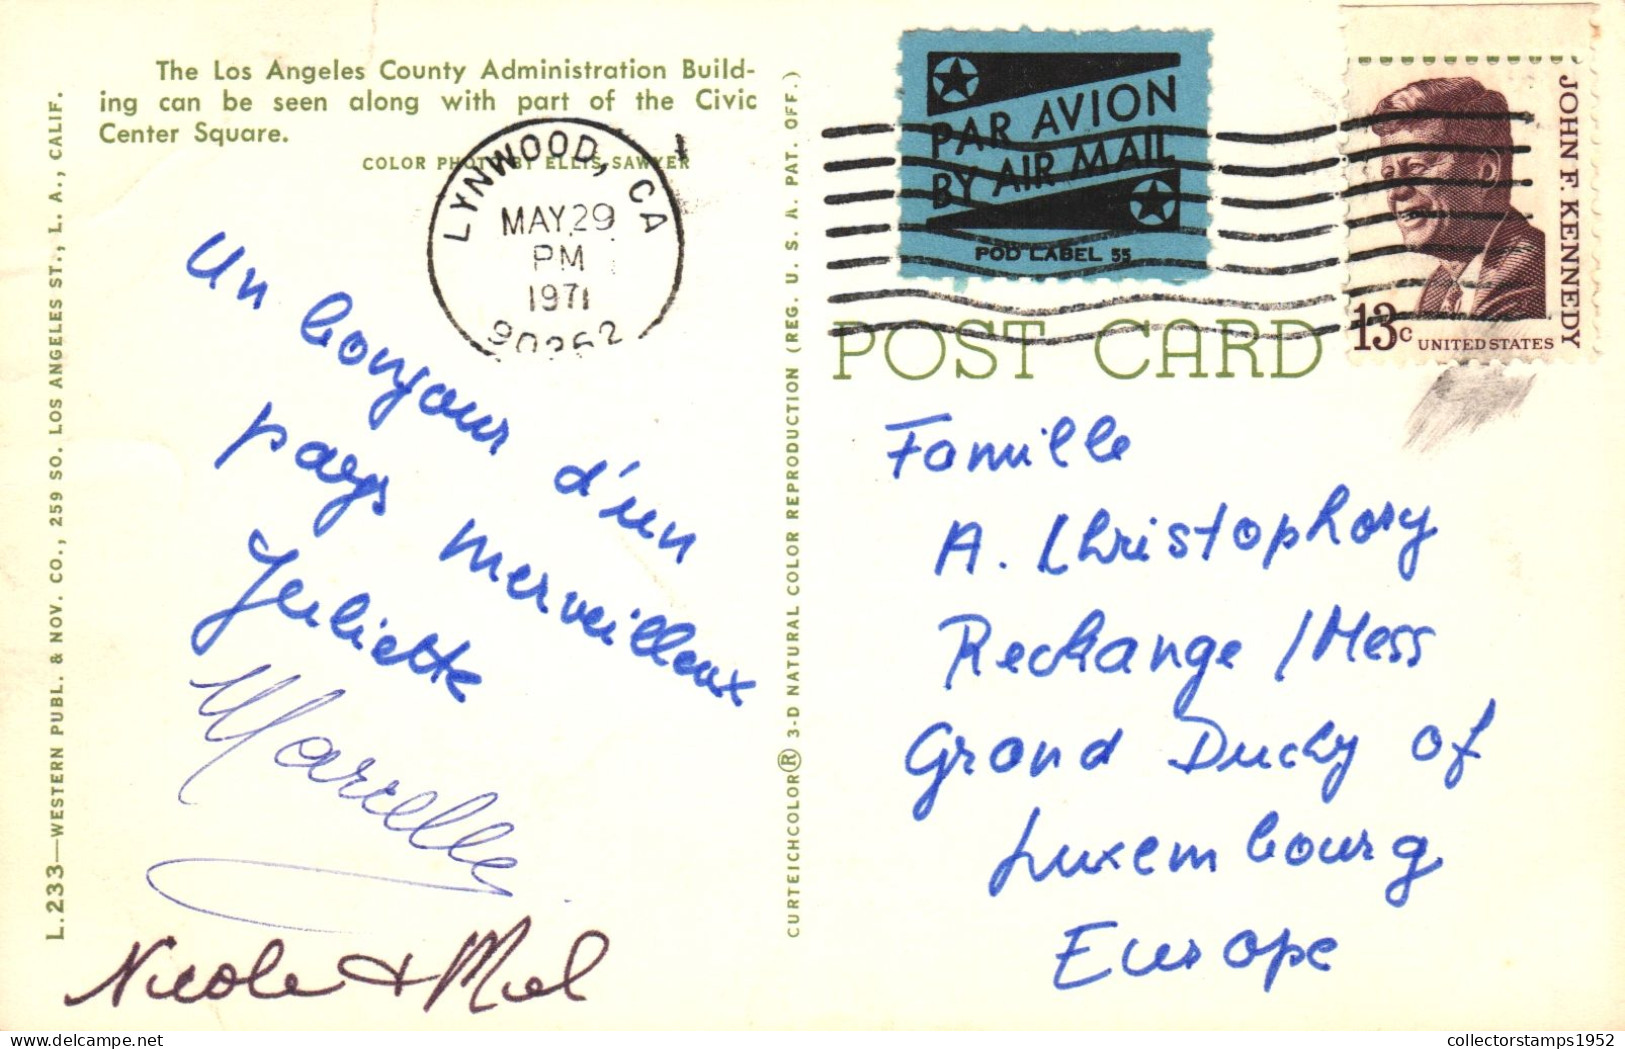 The Los Angeles County Administration Build-
ing can be seen along with part of the Civic
Center Square.
COLOR PHOTO BY ELLIS SAWYER
L.233—WESTERN PUBL. & NOV. CO., 259 SO. LOS ANGELES ST., L. A., CALIF.
LYNWOOD, CA
MAY 29
PM
1971
90262
Un bonjour d'un
pays merveilleux
Juliette
Marcelle
Nicole + Miel
CURTEICHCOLOR® 3-D NATURAL COLOR REPRODUCTION (REG. U. S. A. PAT. OFF.)
PAR AVION
BY AIR MAIL
POD LABEL 55
JOHN F. KENNEDY
13c UNITED STATES
POST CARD
Famille
A. Christophory
Reckange / Mess
Grand Duchy of
Luxembourg
Europe
collectorstamps1952